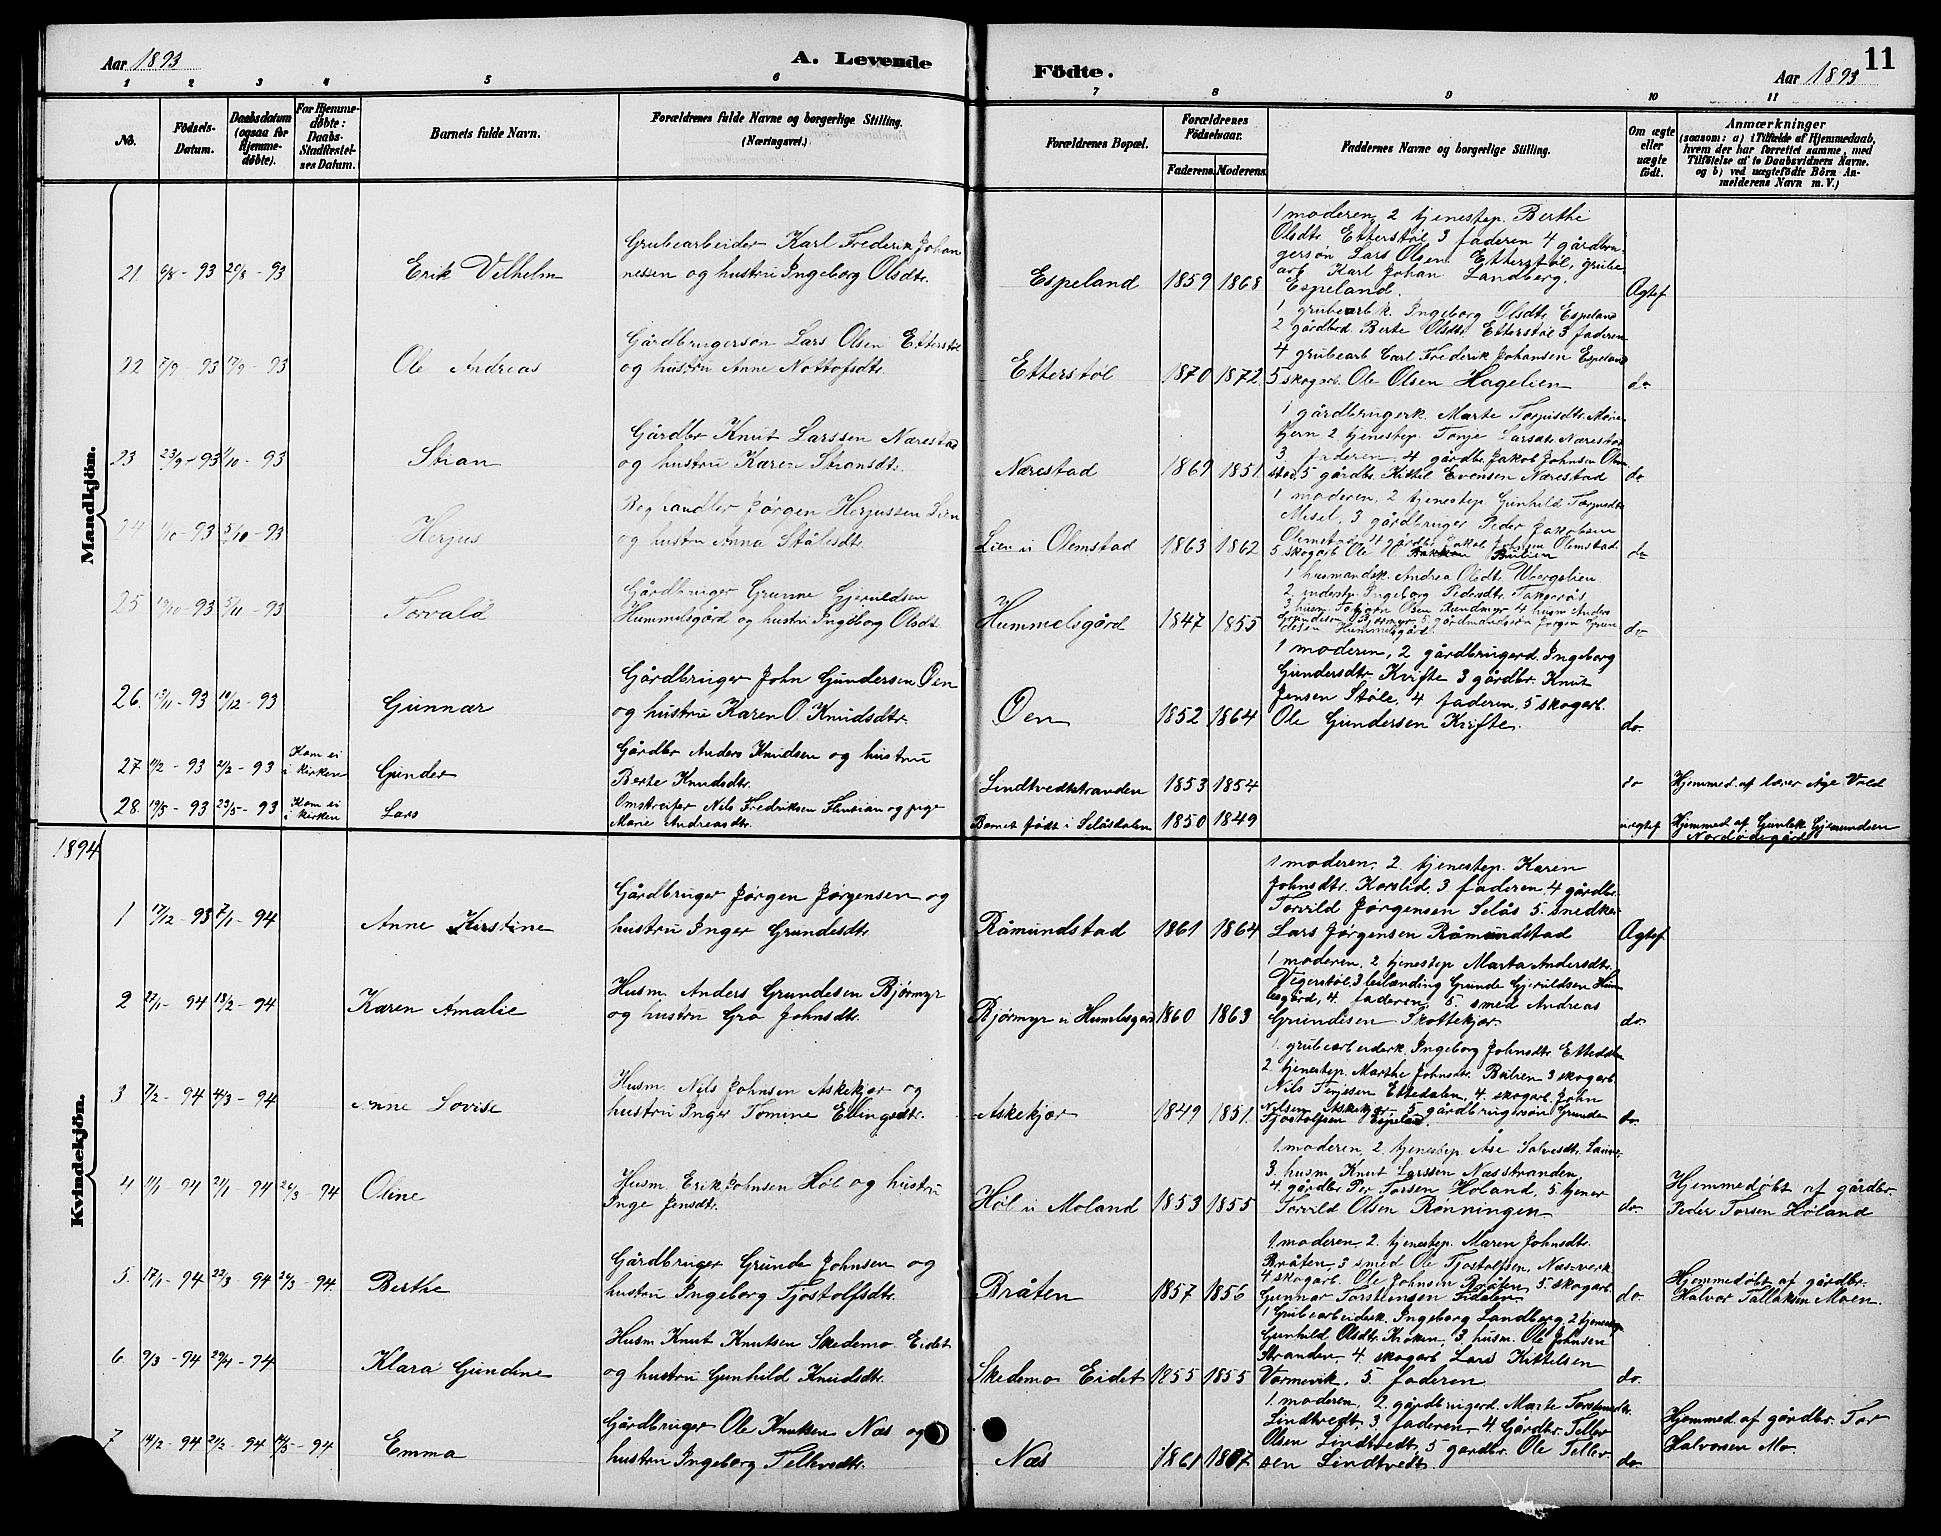 Aar 1893
A. Levende
Födte.
Aar 1893
11
1 2 3 4 5 6 7 8 9 10 11
No.
Födsels-Datum.
Daabsdatum (ogsaa for Hjemme-döbte).
For Hjemme-döbte: Daabs-Stadfæstel-ses Datum.
Barnets fulde Navn.
Forældrenes fulde Navne og borgerlige Stilling. (Næringsvei.)
Forældrenes Bopæl.
Forældrenes Födselsaar.
Faderens. Moderens.
Faddernes Navne og borgerlige Stilling.
Om ægte eller uægte födt.
Anmærkninger
(saasom: a) i Tilfælde af Hjemmedaab, hvem der har forrettet samme, med Tilföielse af to Daabsvidners Navne. og b) ved uægtefödte Börn An-melderens Navn m. V.)
Mandkjön.
21 6/8 - 93 20/8 - 93 Erik Vilhelm
Grubearbeider Karl Frederik Johan
nessen og hustru Ingeborg Olsdtr.
Espeland 1859 1868
1 moderen, 2 tjenestep. Berthe
Olsdtr. Etterstöl 3 faderen 4 gårdbru
gersön Lars Olsen Etterstöl, grube
arb. Karl Johan Landberg,
Espeland.
Ægtef
22 7/9 - 93 17/9 - 93 Ole Andreas
Gårdbrugersön Lars Olsen Etterstöl
og hustru Anne Nottofsdtr.
Etterstöl 1870 1872
1 grubearb.k. Ingeborg Olsdtr. Espeland
2 gårdbrd. Berte Olsdtr. Etterstöl 3 faderen
4 grubearb Carl Frederik Johansen Espeland
5 skogarb. Ole Olsen Hagelien
do
23 23/9 - 93 1/10 - 93 Stian
Gårdbr Knut Larssen Nærestad
og hustru Karen Stiansdtr.
Nærestad 1869 1851
1 gårdbrugerk. Marte Torjusdtr. Mose
tjern 2 tjenestep Tonje Larsdtr. Nærestad
3 faderen, 4 gårdbr. Jakob Johnsen Olim
stad, 5 gårdbr. Kittil Evensen Nærestad
do
24 1/10 - 93 5/10 - 93 Herjus
Boghandler Jörgen Herjussen Lien
og hustru Anna Ståledtr.
Lien u Olemstad 1863 1862
1 moderen, 2 tjenestep Gunhild Torjusdtr
Misel, 3 gårdbruger Peder Jakobsen
Olemstad, 4 gårdbr. Jakob Johnsen Olemstad.
5 skogarb Ole
do
25 - 93 5/11 - 93 Torvald
Gårdbruger Grunne Gjeruldsen
Hummelsgård og hustru Ingeborg Olsdtr.
Hummelsgård 1847 1855
1 husmandsk. Andrea Olsdtr. Ubergslien
2. inderstp. Ingeborg Pedersdtr.
3 husm. Torbjörn Olsen 4 husm Anders
Grundesen Björmyr, 5 gårdmandssön Jörgen Grun
desen Hummelsgård
do
26. 12/11 - 93 10/12 - 93 Gunnar
Gårdbruger John Gundersen Öen
og hustru Karen O. Knudsdtr.
Öen 1852 1864
1 moderen, 2 gårdbrugerd. Ingeborg
Gundersdtr Kvifte 3 gårdbr. Knut
Jensen Stöle, 4 faderen, 5 skogarb.
Ole Gundersen Kvifte.
do.
27 11/2 - 93 21/2 - 93 Kom ei i kirken Gunder
Gårdbr Anders Knudsen og hustru
Berte Knudsdtr.
Lindtvedtstranden 1853 1854
do
Hjemmed. af lærer Åge Vold
28. 19/5 - 93 23/5 - 93 Kom ei i kirken Lars
Omstreifer Nils Fredriksen Flensian og pige
Marie Andreasdtr.
Barnet födt i Selåsdalen 1850 1849
uægtef
Hjemmed af Gunlek Gjermundsen
Nordödegård
1894
Kvindekjön.
1 17/12 - 93 7/1 - 94 Anne Kirstine
Gårdbruger Jörgen Jörgensen og
hustru Inger Grundesdtr.
Råmundstad 1861 1864
1 moderen. 2 tjenestep. Karen
Johnsdtr. Korslid, 3 faderen, 4 gårdbr.
Torvild Jörgensen Selås 5. snedker
Lars Jörgensen Råmundstad
Ægtef
2 27/1 - 94 18/2 - 94 Karen Amalie
Husm. Anders Grundesen Björmyr
og hustru Gro Johnsdtr.
Björmyr u Humlesgård 1860 1863
1 moderen, 2 tjenestep Marta Andersdtr.
Vegerstöl, 3 leilænding Grunde Gjeruldsen Hum
lesgård, 4. faderen, 5. smed Andreas
Grundesen Skottekjær
do.
3 7/2 - 94 4/3 - 94 Anne Lovise
Husm. Nils Johnsen Askekjær og
hustru Inger Tomine Ellingsdtr.
Askekjær 1849 1851
1. grubearbeiderk. Ingeborg Johnsdtr. Ettedalen
2. tjenestep. Marthe Johnsdtr. Bulien 3 skogarb
Nils Terjesen Ettedalen, 4. skogarb. John
Nilsen Askekjær, 5 gårdbrugersön Grunde
Tjostolfsen Espeland.
do.
4 11/1 - 94 21/1 - 94 26/3 - 94 Oline
Husm. Erik Johnsen Höl og hustru
Inge Jensdtr.
Höl u Moland 1853 1855
1. moderen, 2. tjenestep Åse Salvesdtr. Lauve
3. husm. Knut Larssen Næsstranden
4. gårdbr Per Torsen Höland, 5. tjener
Torvild Olsen Rönningen
do.
Hjemmedöbt af gårdbr.
Peder Torsen Höland
5. 17/1 - 94 22/3 - 94 26/3 - 94. Berthe
Gårdbruger Grunde Johnsen og
hustru Ingeborg Tjostolfsdtr.
Bråten 1857 1856
1. moderen, 2. tjenestep. Maren Johnsdtr.
Bråten, 3 smed Ole Tjostolfsen, Næsverk
4 skogarb. Ole Johnsen Bråten, 5. skogarb.
Gunnar Torstensen Fidalen
do.
Hjemmedöbt af gårdbr.
Halvor Tallaksen Moen.
6. 9/3 - 94 29/4 - 94 Klara Gundine
Husm Knut Knutsen Skedemo Eidet
og hustru Gunhild Knudsdtr.
Skedemo Eidet 1855 1855
1 Grubearbeiderk. Ingeborg Landberg, 2 tjenestep
Gunhild Olsdtr. Kroken, 3. husm. Ole Johnsen
Stranden, 4. skogarb. Lars Kittelsen
Vormevik, 5. faderen
do.
7 14/2 - 94 21/2 - 94 - 94 Emma
Gårdbruger Ole Knutsen Næs og
hustru Ingeborg Tellevsdtr.
Næs 1861 1867
1. moderen, 2. gårdbrugerd. Marte Torstensdtr.
Lindtvedt, 3. faderen, 4. Gårdbr. Tellev
Olsen Lindtvedt, 5 gårdbr. Ole Tellev
sen Lindtvedt.
do
Hjemmed af gårdbr. Tor
Halvorsen Mo